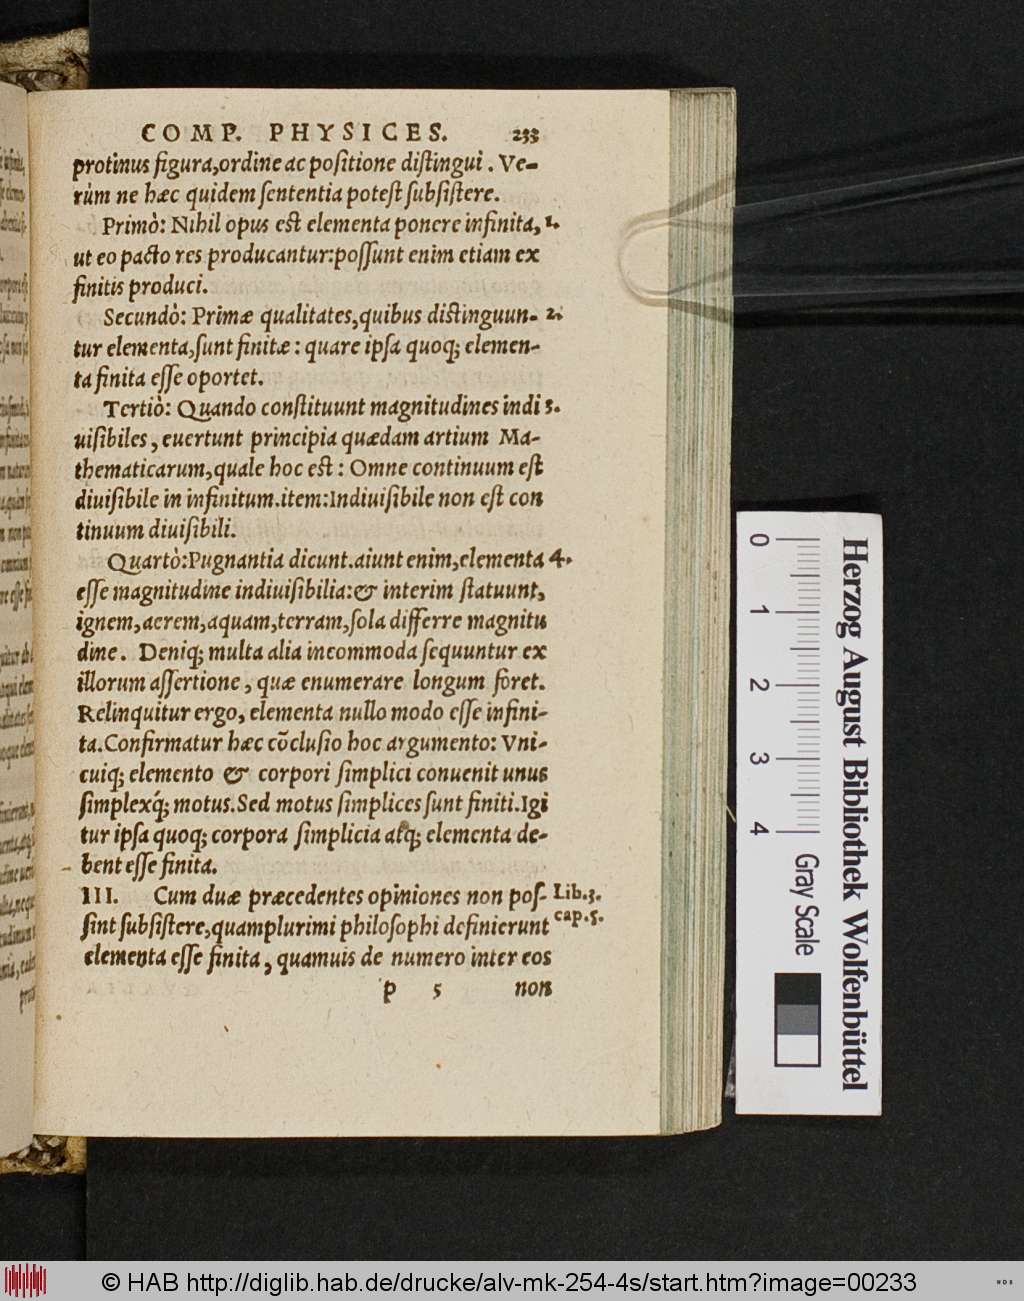 COMP. PHYSICES. 233
protinus figura,ordine ac positione distingui. Ve-
rùm ne hæc quidem sententia potest subsistere.
Primò: Nihil opus est elementa ponere infinita, 1.
ut eo pacto res producantur:possunt enim etiam ex
finitis produci.
Secundò: Primæ qualitates,quibus distinguun- 2.
tur elementa,sunt finitæ: quare ipsa quoq; elemen-
ta finita esse oportet.
Tertiò: Quando constituunt magnitudines indi 3.
uisibiles, euertunt principia quædam artium Ma-
thematicarum,quale hoc est: Omne continuum est
diuisibile in infinitum.item:Indiuisibile non est con
tinuum diuisibili.
Quartò:Pugnantia dicunt.aiunt enim,elementa 4.
esse magnitudine indiuisibilia:& interim statuunt,
ignem,aerem,aquam,terram,sola differre magnitu
dine. Deniq; multa alia incommoda sequuntur ex
illorum assertione, quæ enumerare longum foret.
Relinquitur ergo, elementa nullo modo esse infini-
ta.Confirmatur hæc cõclusio hoc argumento: Vni-
cuiq; elemento & corpori simplici conuenit unus
simplexq́; motus.Sed motus simplices sunt finiti.Igi
tur ipsa quoq; corpora simplicia atq; elementa de-
bent esse finita.
III. Cum duæ præcedentes opiniones non pos- Lib.3.
sint subsistere,quamplurimi philosophi definierunt cap.5.
elementa esse finita, quamuis de numero inter eos
p 5 non
0 1 2 3 4
Gray Scale
Herzog August Bibliothek Wolfenbüttel
© HAB http://diglib.hab.de/drucke/alv-mk-254-4s/start.htm?image=00233